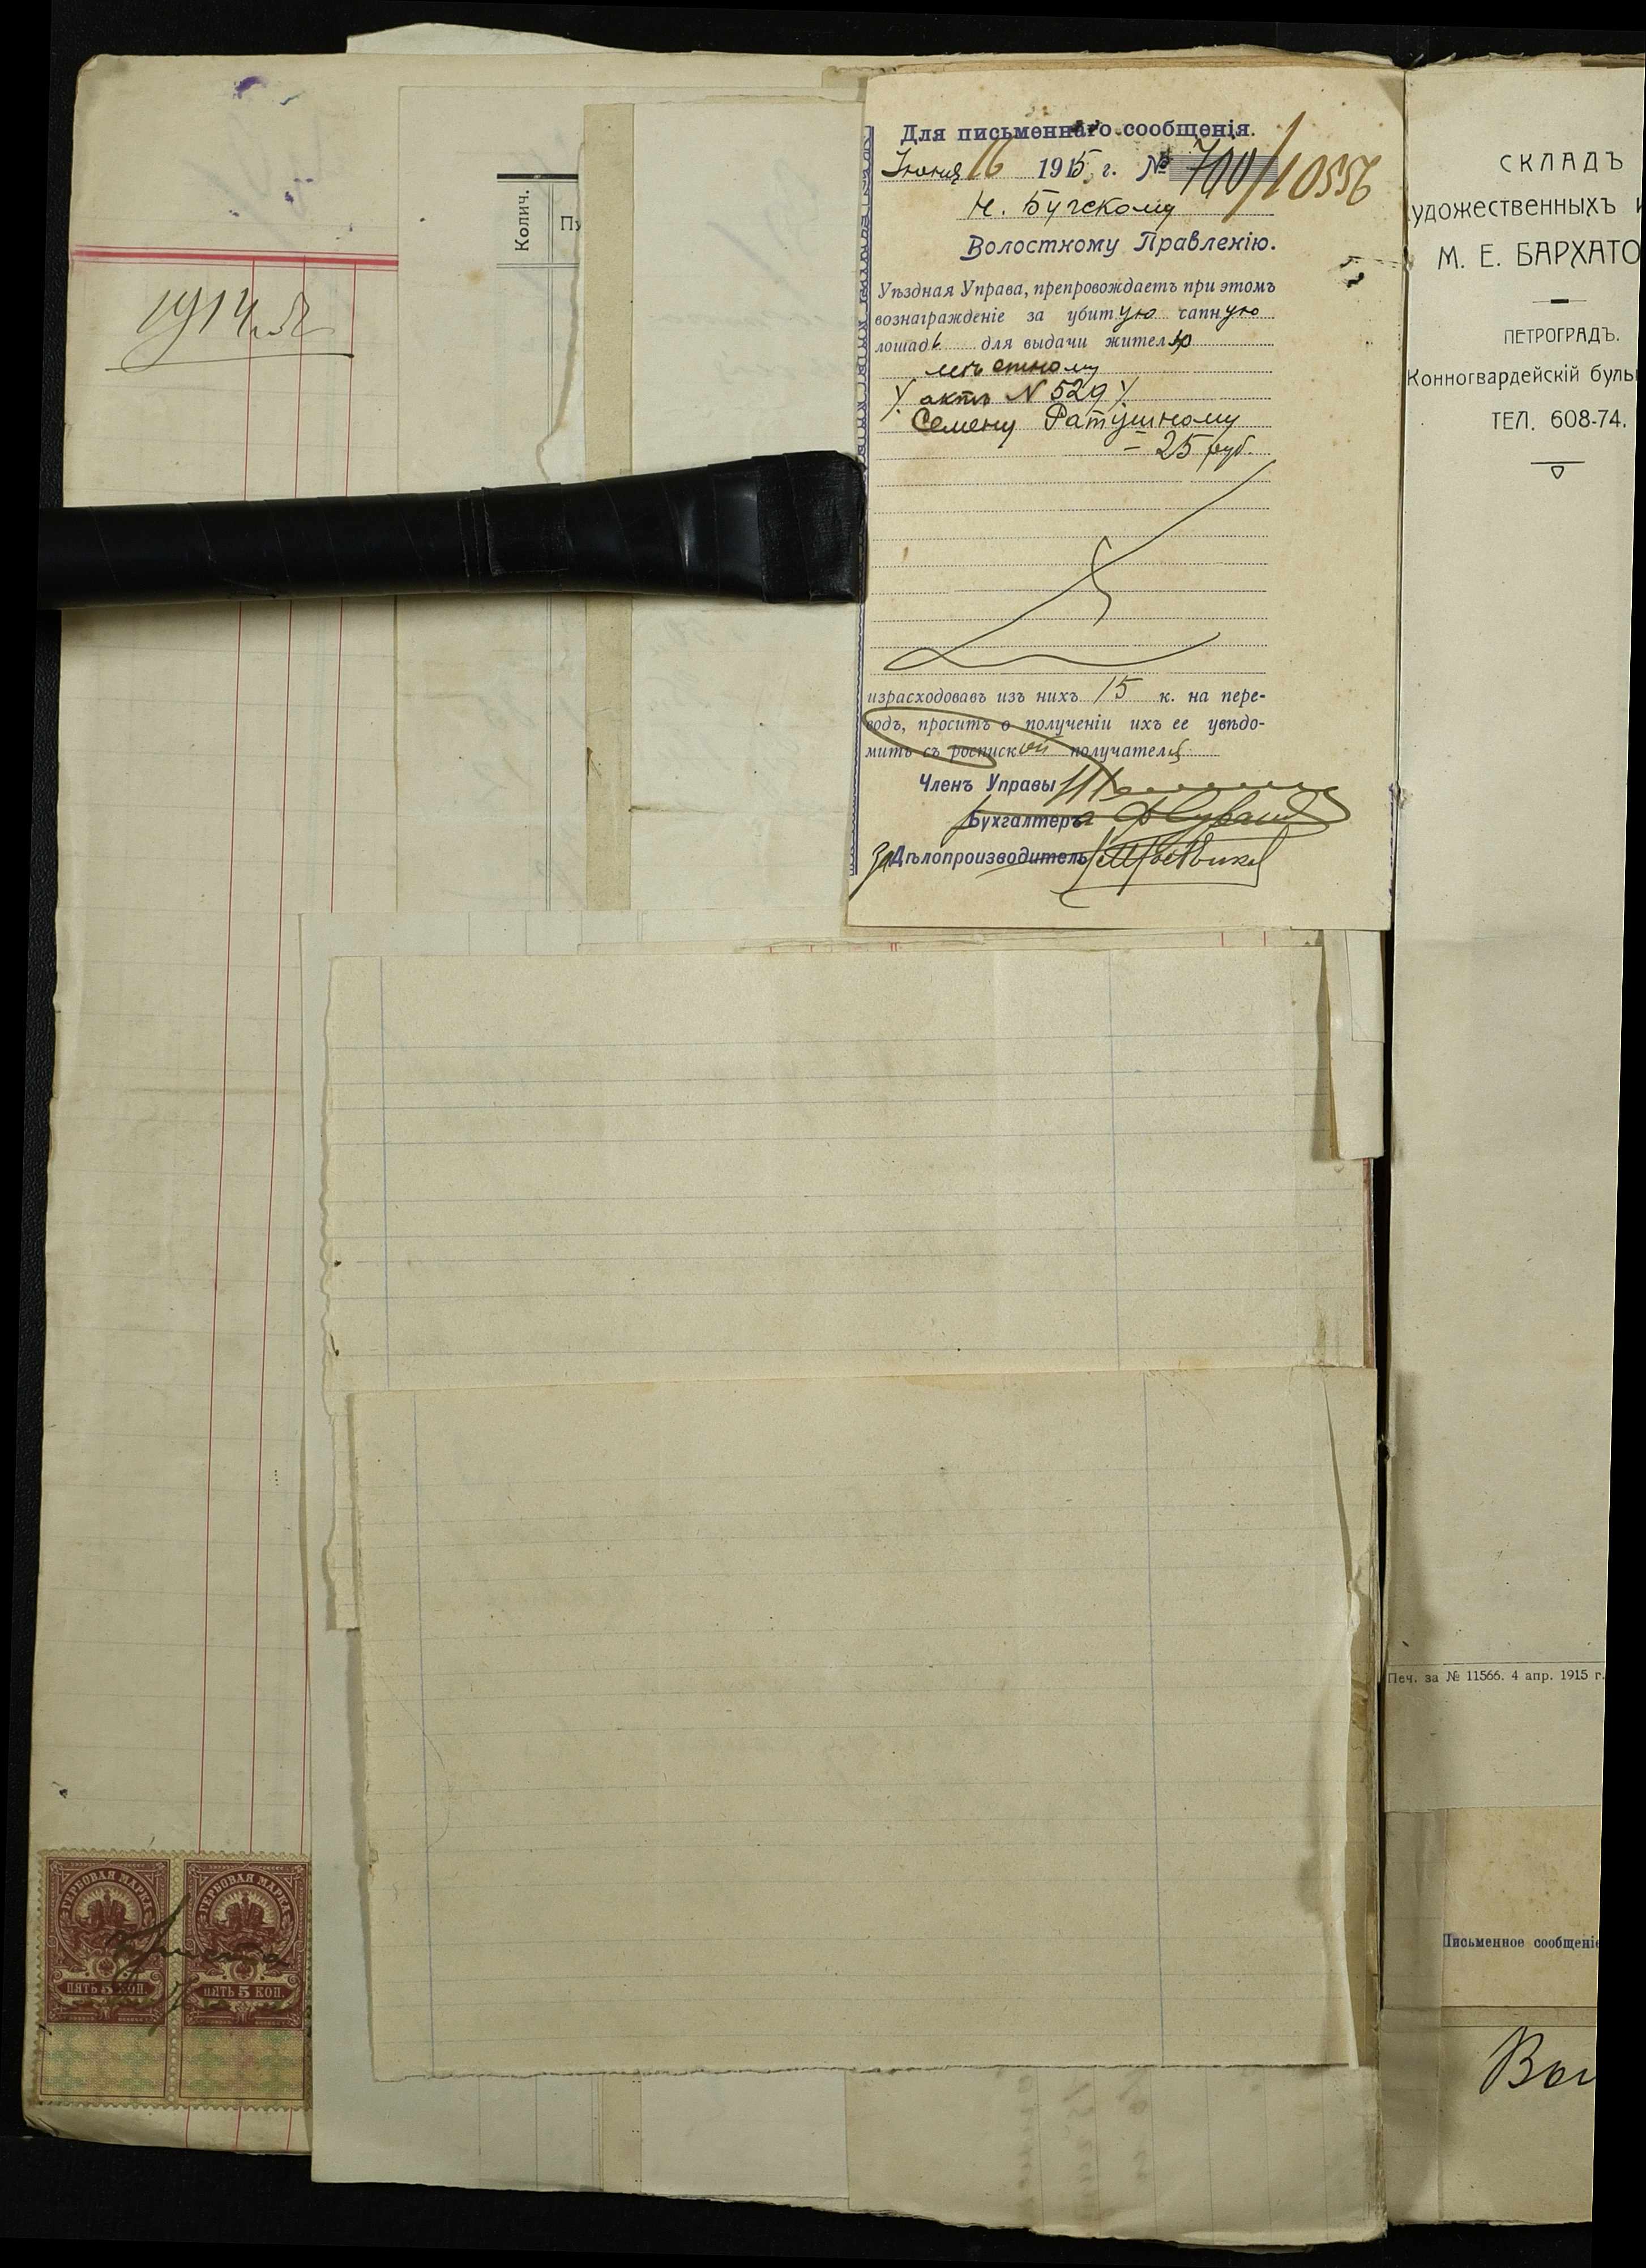 1914 г.
Колич.
Пу
Для письменнаго сообщенія.
Іюня 16 1915 г. № 700/10556
Н. Бугскому
Волостному Правленію.
Уѣздная Управа, препровождаетъ при этомъ
вознагражденіе за убитую сапную
лошадь для выдачи жителю
мѣстному
акт N 529
Семену Ратушному
= 25 руб.
израсходовавъ изъ нихъ 15 к. на пере-
водъ, проситъ о полученіи ихъ ее увѣдо-
мить съ роспиской получателя
Членъ Управы
Бухгалтеръ
За Дѣлопроизводитель
СКЛАДЪ
удожественныхъ и
М. Е. БАРХАТО
ПЕТРОГРАДЪ.
Конногвардейскій буль
ТЕЛ. 608-74.
Печ. за № 11566. 4 апр. 1915 г.
Письменное сообщеніе
ГЕРБОВАЯ МАРКА
ПЯТЬ 5 КОП.
ГЕРБОВАЯ МАРКА
ПЯТЬ 5 КОП.